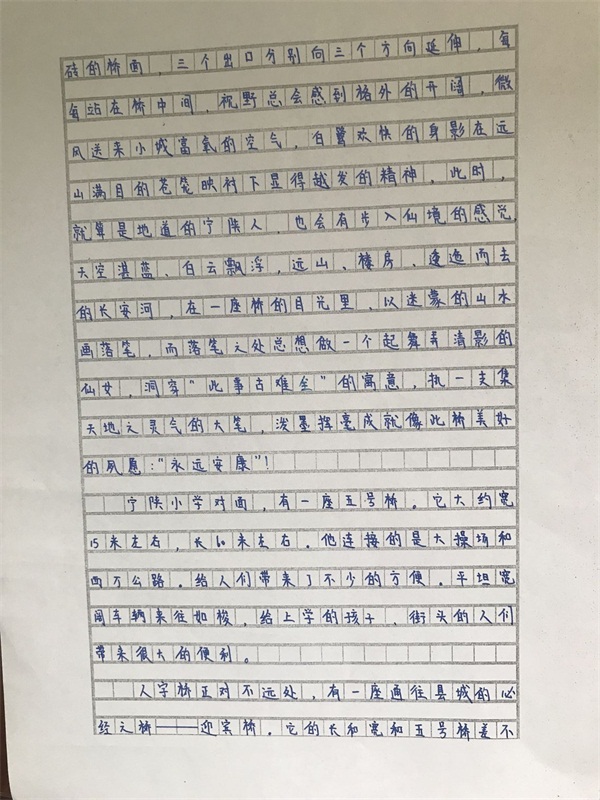 砖的桥面，三个出口分别向三个方向延伸，每
每站在桥中间，视野总会感到格外的开阔，微
风送来小城富氧的空气，白鹭欢快的身影在远
山满目的苍笼映衬下显得越发的精神，此时，
就算是地道的宁陕人，也会有步入仙境的感觉。
天空湛蓝、白云飘浮，远山、楼房、逶迤而去
的长安河，在一座桥的目光里，以迷蒙的山水
画落笔，而落笔之处总想做一个起舞弄清影的
仙女，洞穿“此事古难全”的寓意，执一支集
天地之灵气的大笔，泼墨挥毫成就像此桥美好
的夙愿：“永远安康”！
宁陕小学对面，有一座五号桥。它大约宽
15米左右，长60米左右。他连接的是大操场和
西万公路。给人们带来了不少的方便。平坦宽
阔车辆来往如梭，给上学的孩子，街头的人们
带来很大的便利。
人字桥正对不远处，有一座通往县城的必
经之桥——迎宾桥。它的长和宽和五号桥差不